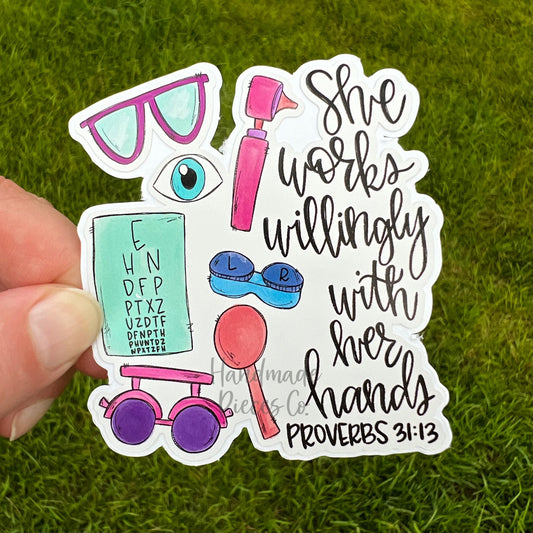 She
works
willingly
with
her
hands
PROVERBS 31:13
E
H N
D F P
P T X Z
U Z D T F
D F N P T H
P H U N T D Z
W P X T Z F H
L R
Handmade
Pieces Co.